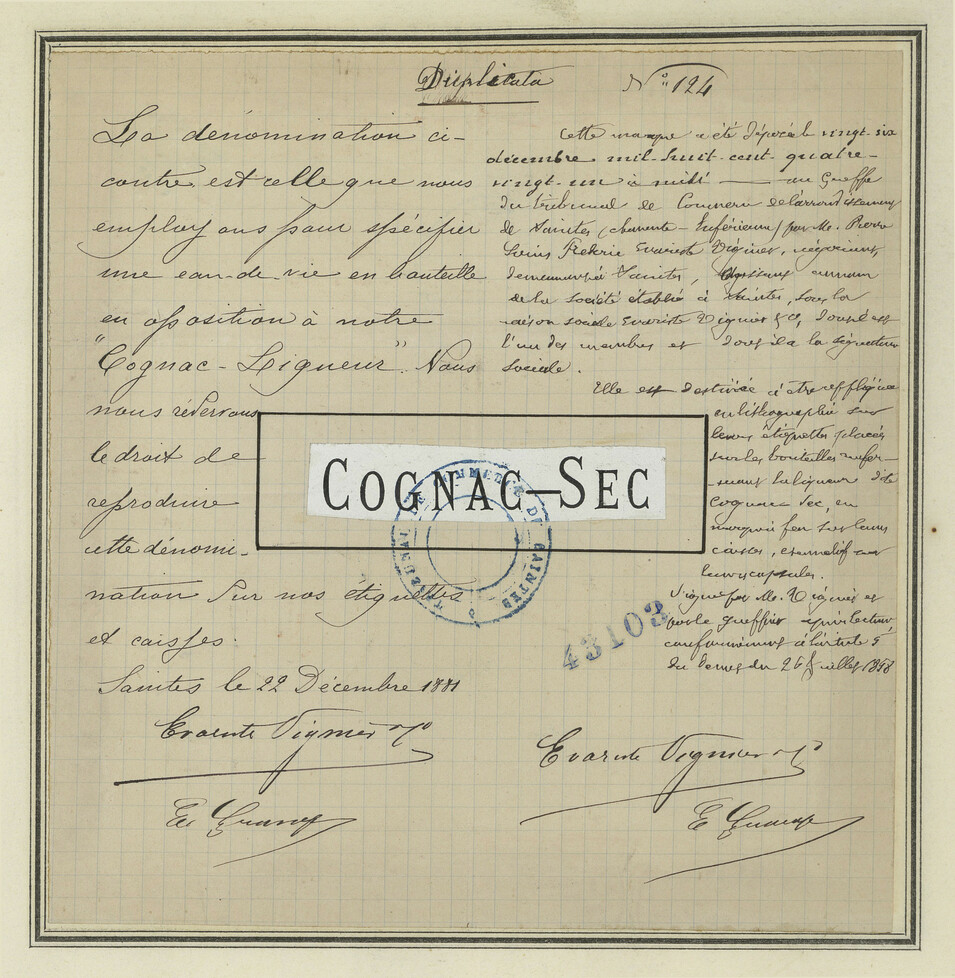 Duplicata
N° 124
La dénomination ci-
contre est celle que nous
employons pour spécifier
une eau-de-vie en bouteille
en opposition à notre
"Cognac-Liqueur". Nous
nous réservons
le droit de
reproduire
cette dénomi-
nation sur nos étiquettes
et caisses.
Saintes le 22 Décembre 1881
Evariste Vignier & Co
Cette marque a été déposée le vingt-six
décembre mil-huit-cent-quatre-
vingt-un à midi — au Greffe
du tribunal de Commerce de l'arrondissement
de Saintes (Charente-Inférieure) par Mr. Pierre
Louis Frédéric Evariste Vignier, négociant,
demeurant à Saintes, agissant au nom
de la société établie à Saintes, sous la
raison sociale Evariste Vignier & Co, dont il est
l'un des membres et dont il a la signature
sociale.
Elle est destinée à être
en lithographie sur
leurs étiquettes placées
sur les bouteilles renfer-
-mant la liqueur dite
cognac sec, en
marque à feu sur leurs
caisses, et au
leurs capsules.
Signé par Mr. Vignier et
par le greffier après lecture,
conformément à l'article 5
du 26 Juillet 1858
Evariste Vignier & Co
COGNAC-SEC
TRIBUNAL DE COMMERCE DE SAINTES
43103